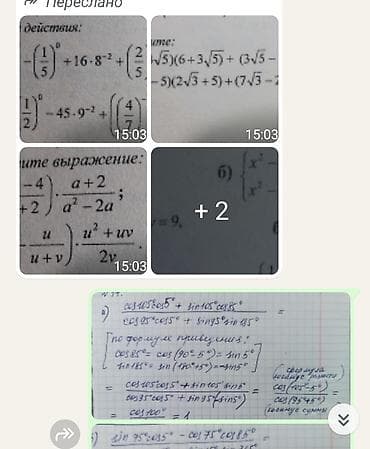 Переслано
действия:
-(1/5)⁰ + 16·8⁻² + (2/5
1/2)⁰ - 45·9⁻² + ((4/7)⁻
15:03
ите:
√5)(6+3√5) + (3√5 -
- 5)(2√3 + 5) + (7√3 - 2
15:03
ите выражение:
-4/+2)·(a+2)/(a²-2a);
- u/(u+v))·(u²+uv)/2v.
15:03
б) { x² -
x² -
= 9,
+ 2
а) (cos105°cos5° + sin105°cos85°)/(cos95°cos5° + sin95°sin185°) =
[по формуле приведения:
cos85° = cos(90°-5°) = sin5°
sin185° = sin(180°+5°) = -sin5°]
= (cos105°cos5° + sin105°sin5°)/(cos95°cos5° + sin95°(-sin5°)) = (формула косинус разности) cos(105°-5°)/cos(95°+5°) (косинус суммы)
= cos100°/ = 1
) sin75°cos5° - cos75°cos85° =